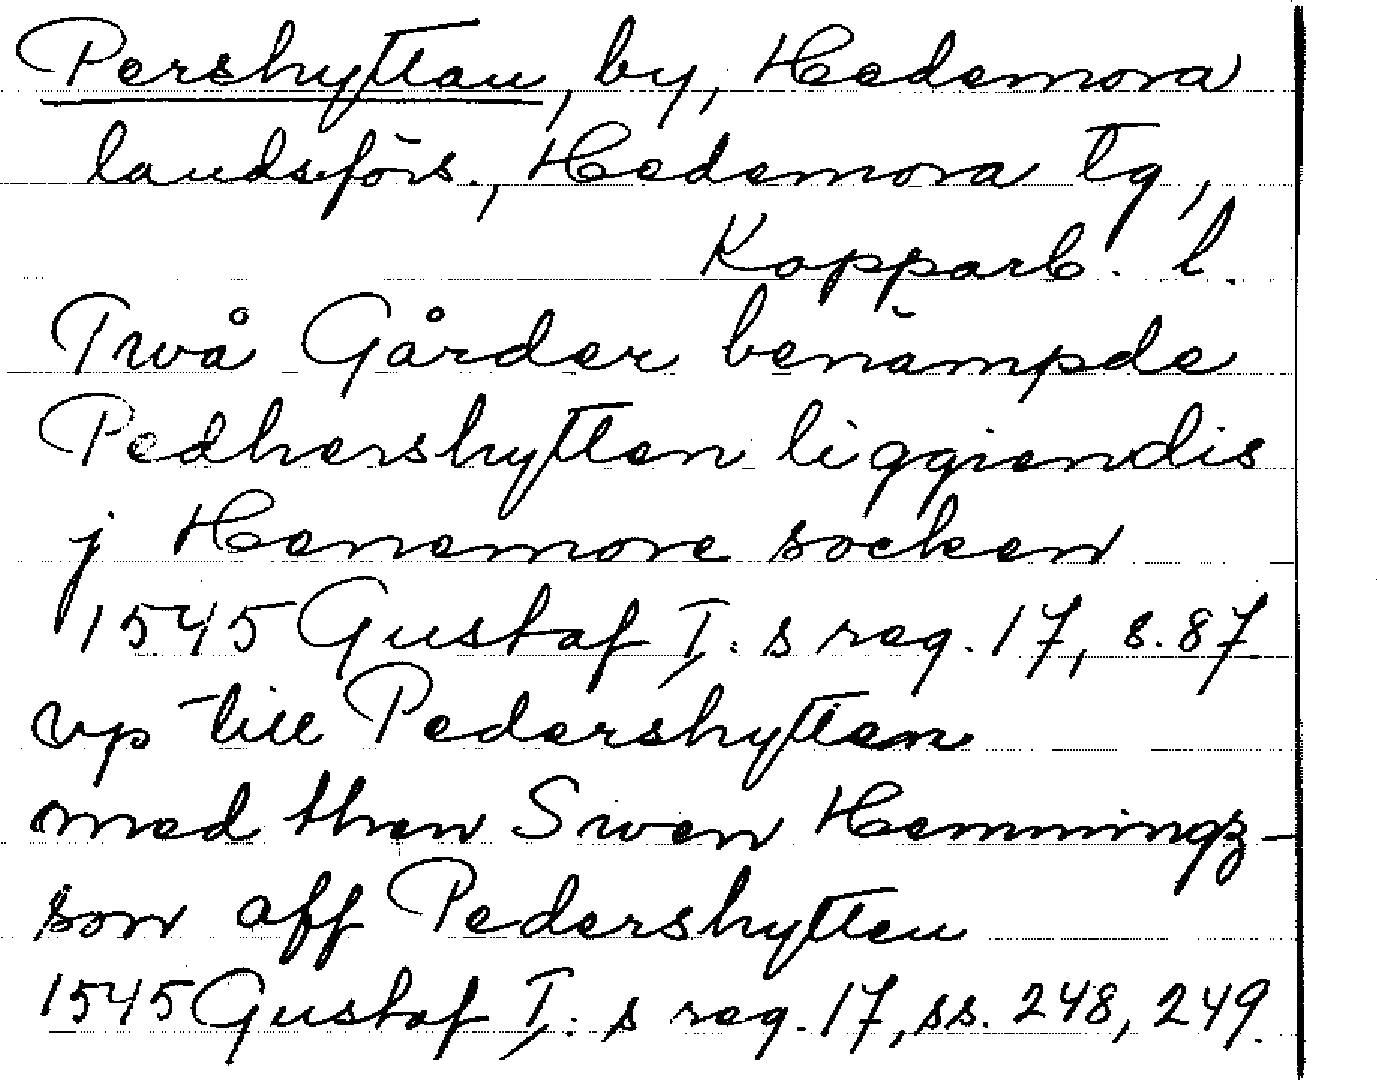 Pershyttan, by, Hedemora
landsförs., Hedemora tg,
Kopparb. l.
Twå Gårder benämpde
Pedhershytten liggiendis
j Henemore socken
1545 Gustaf I: s reg. 17, s. 87
vp till Pedershytten
med then Swen Hemmingz-
son aff Pedershytten
1545 Gustaf I: s reg. 17, ss. 248, 249.